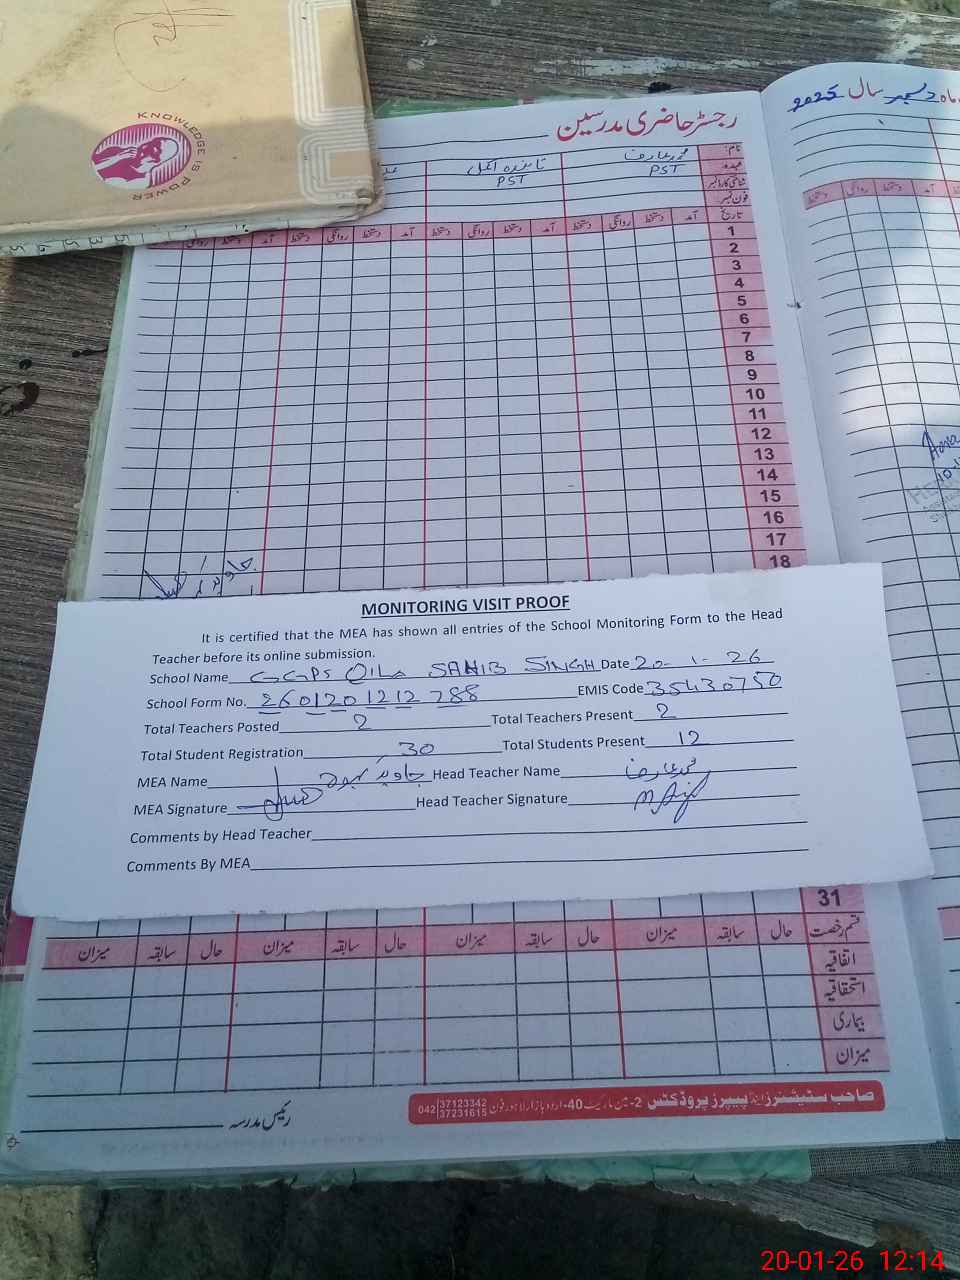 KNOWLEDGE IS POWER
رجسٹر حاضری مدرسین
ماہ دسمبر سال 2025
نام:
محمد عارف
عہدہ:
PST
PST
شناختی کارڈ نمبر
فون نمبر:
تاریخ آمد دستخط روانگی دستخط آمد دستخط روانگی دستخط آمد دستخط روانگی دستخط آمد دستخط روانگی
1
2
3
4
5
6
7
8
9
10
11
12
13
14
15
16
17
18
MONITORING VISIT PROOF
It is certified that the MEA has shown all entries of the School Monitoring Form to the Head
Teacher before its online submission.
School Name GGPS QILA SAHIB SINGH Date 20-1-26
School Form No. 2601201212788 EMIS Code 35430750
Total Teachers Posted 2 Total Teachers Present 2
Total Student Registration 30 Total Students Present 12
MEA Name جاوید Head Teacher Name محمد عارف
MEA Signature Head Teacher Signature
Comments by Head Teacher
Comments By MEA
31
قسم رخصت حال سابقہ میزان حال سابقہ میزان حال سابقہ میزان حال سابقہ میزان
اتفاقیہ
استحقاقیہ
بیماری
میزان
صاحب سٹیشنرز اینڈ پیپرز پروڈکٹس 2-مین مارکیٹ 40-اردو بازار لاہور فون 042 37123342 37231615
رئیس مدرسہ
20-01-26 12:14